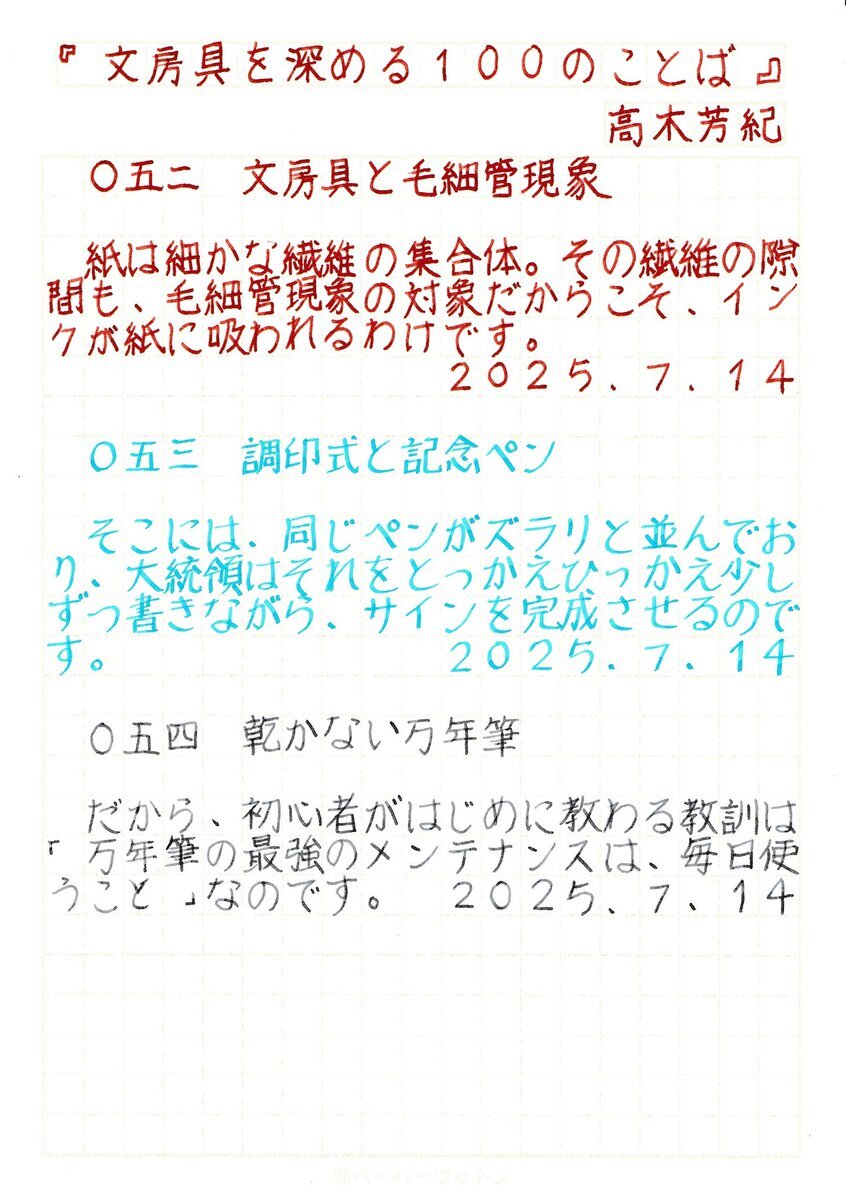 『文房具を深める１００のことば』
高木芳紀
〇五二　文房具と毛細管現象
紙は細かな繊維の集合体。その繊維の隙
間も、毛細管現象の対象だからこそ、イン
クが紙に吸われるわけです。
２０２５．７．１４
〇五三　調印式と記念ペン
そこには、同じペンがズラリと並んでお
り、大統領はそれをとっかえひっかえ少し
ずつ書きながら、サインを完成させるので
す。　２０２５．７．１４
〇五四　乾かない万年筆
だから、初心者がはじめに教わる教訓は
「万年筆の最強のメンテナンスは、毎日使
うこと」なのです。　２０２５．７．１４